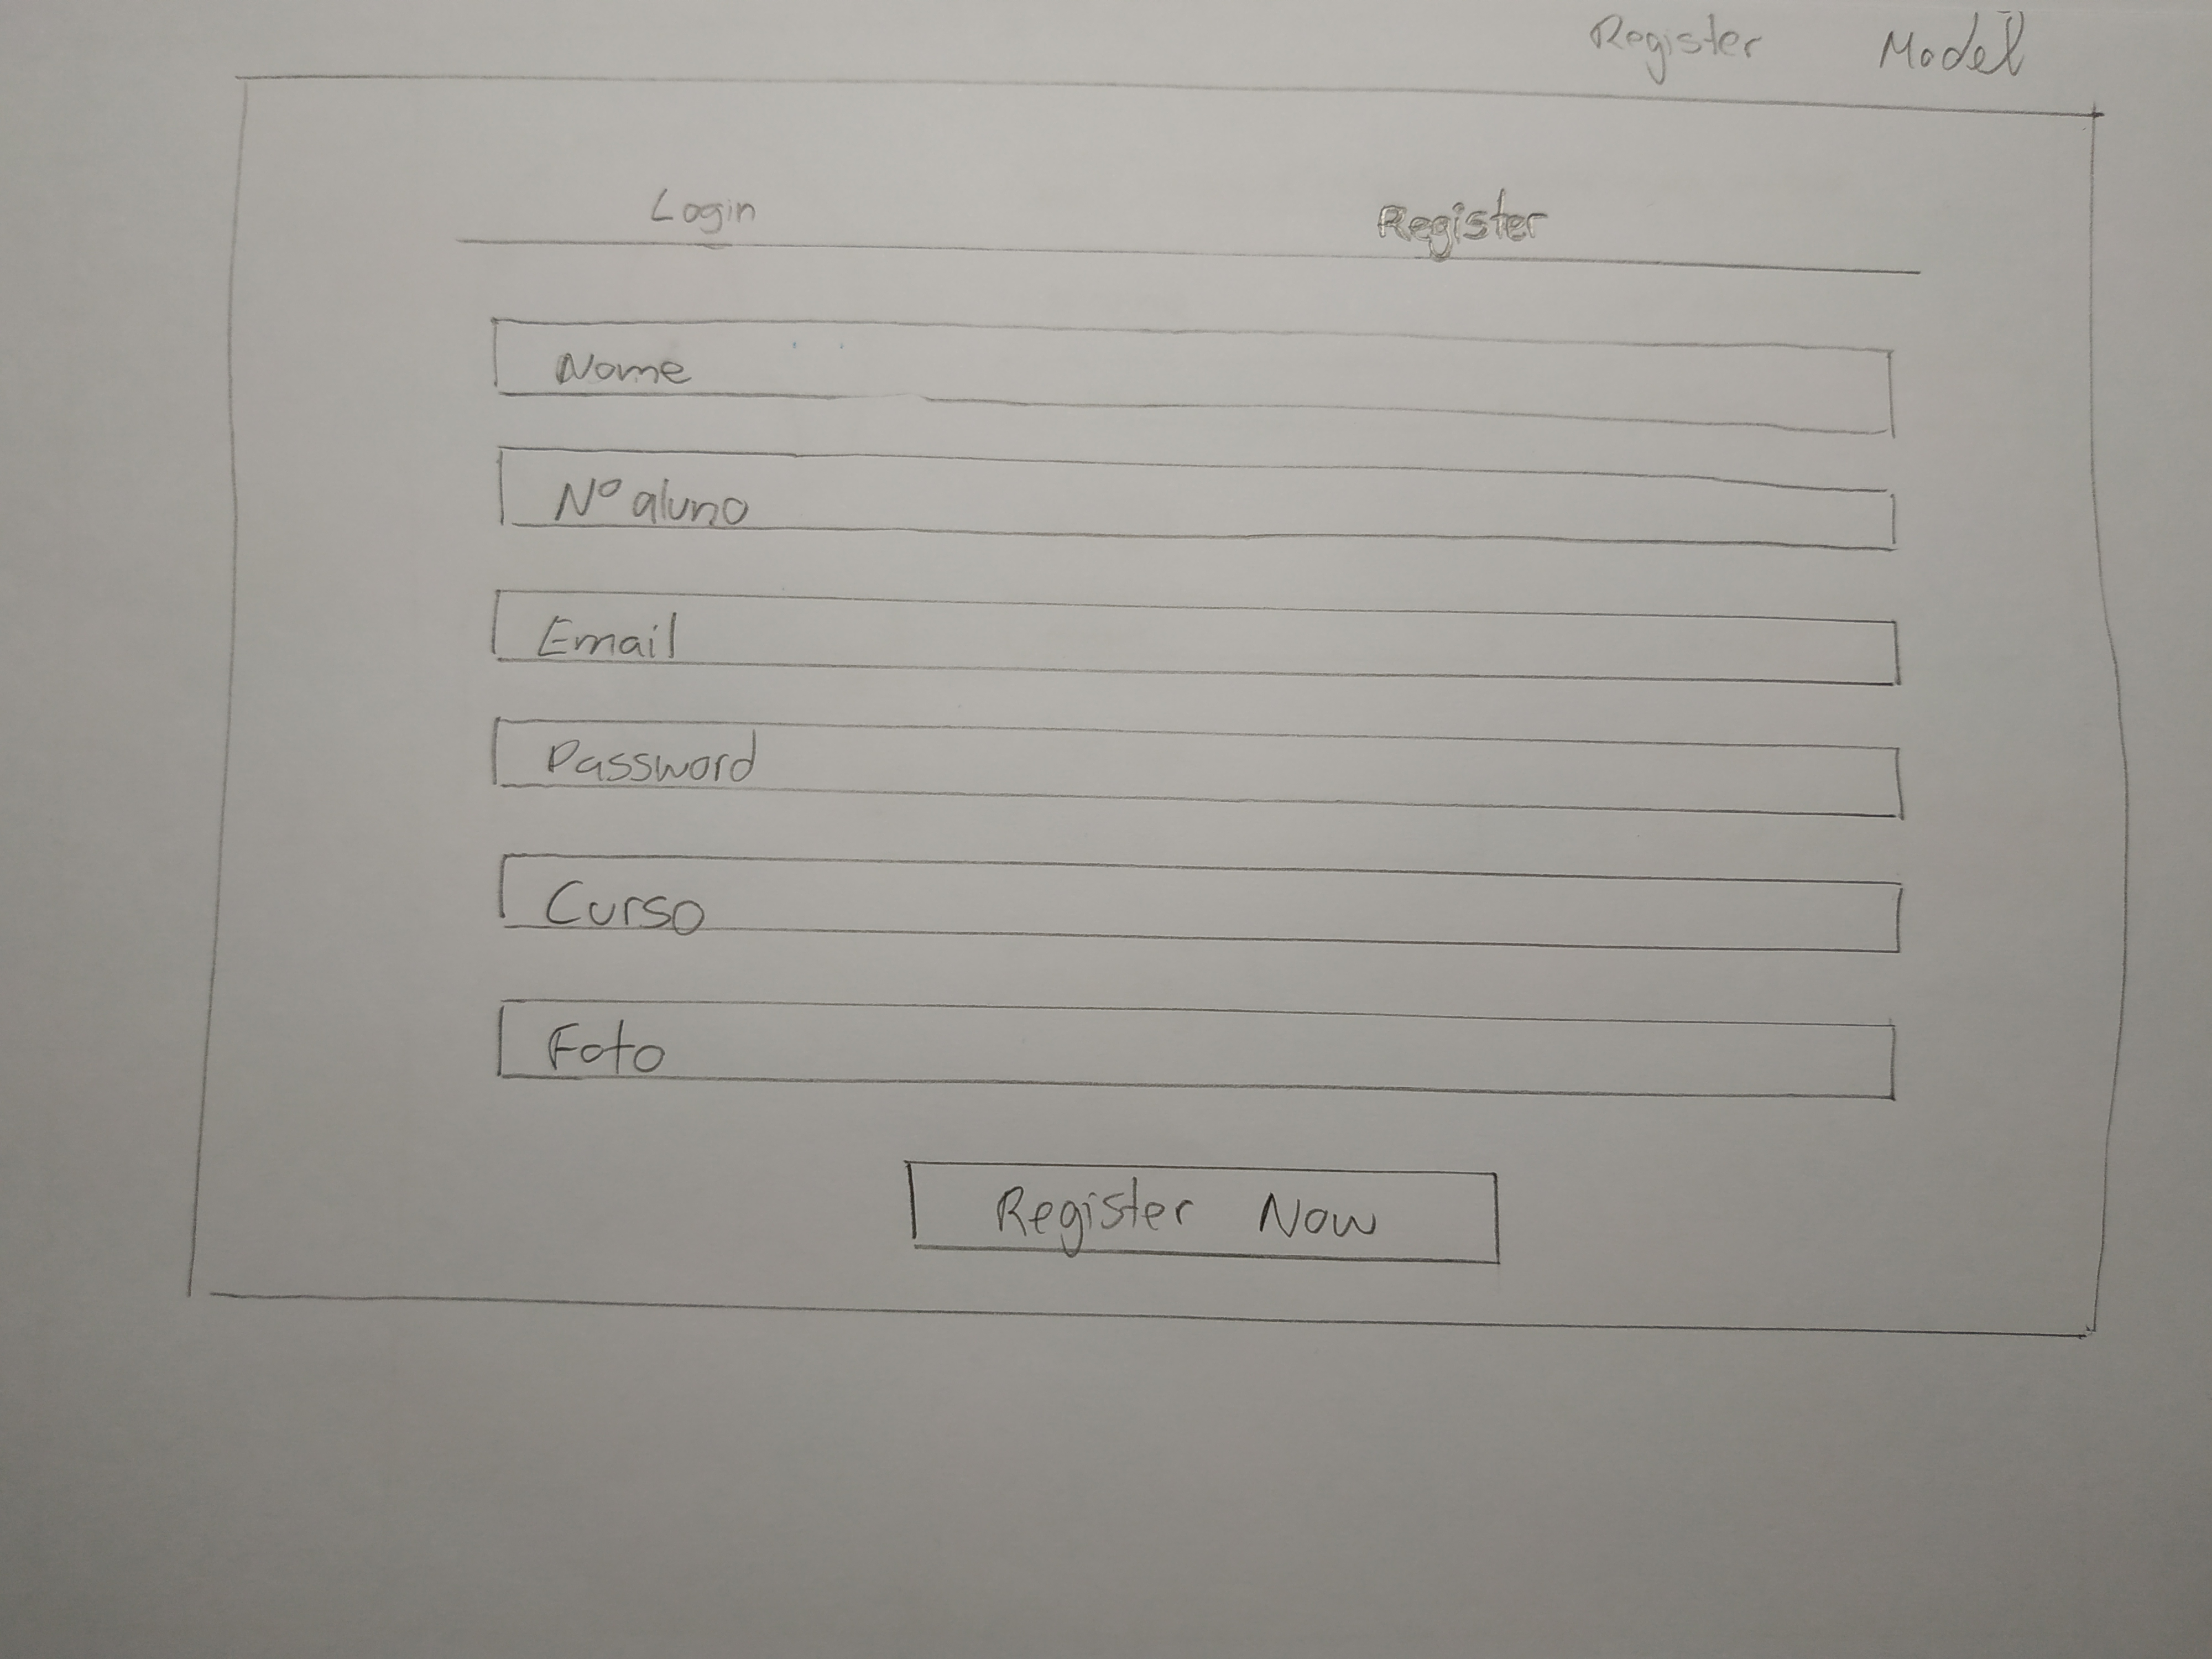 Register Model
Login Register
Nome
Nº aluno
Email
Password
Curso
Foto
Register Now